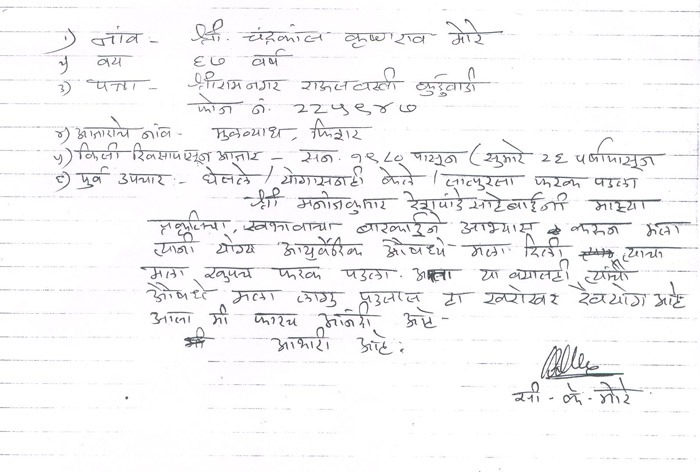 १) नांव - श्री. चंद्रकांत कृष्णराव मोरे
२) वय ६७ वर्ष
३) पत्ता - श्रीरामनगर राऊळवस्ती कुर्डुवाडी
फोन नं. २२५९४७
४) आजाराचे नांव - मुळव्याध, फिशर
५) किती दिवसापासून आजार - सन. १९८० पासून (सुमारे २६ वर्षापासून
६) पुर्व उपचार :- घेतले / योगासनही केले / लातुरला फरक पडला
श्री मनोजकुमार देशपांडे साहेबांनी माझ्या
प्रकृतिचा, स्वभावाचा बारकाईने अभ्यास करून मला
त्यांनी योग्य आयुर्वेदिक औषधे मला दिली त्याचा
मला खुपच फरक पडला. आता या वयातही त्यांची
औषधे मला लागु पडलात हा खरोखर दैवयोग आहे
आता मी फारच आनंदी आहे -
मी आभारी आहे.
सी - के - मोरे